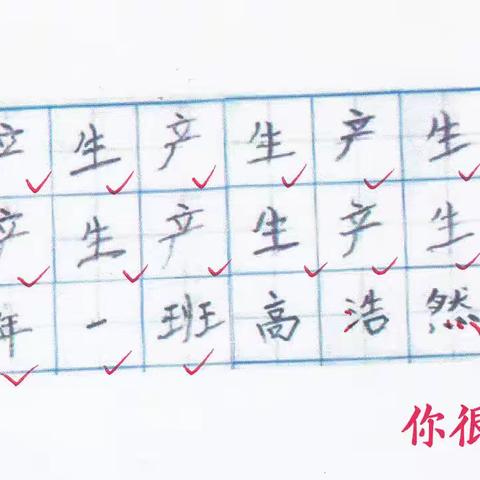 产生产生产生
产生产生产生
年一班高浩然
你很